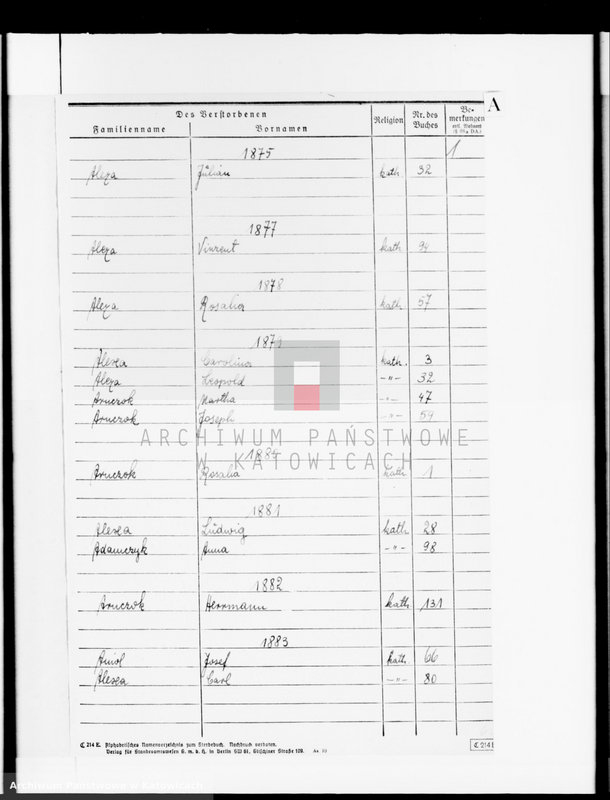 Des Verstorbenen
Familienname Vornamen Religion Nr. des Buches Bemerkungen A
1875 1
Alexa Julian kath. 32
1877
Alexa Vinzent kath 94
1878
Alexa Rosalia kath 57
1879
Alexa Carolina kath. 3
Alexa Leopold -"- 32
Martha -"- 47
Joseph -"- 59
ARCHIWUM PAŃSTWOWE
W KATOWICACH
Rosalia kath 1
1881
Alexa Ludwig kath 28
Adamczyk Anna -"- 98
1882
Herrmann kath 131
1883
Josef kath 66
Alexa Carl -"- 80
C 214 E. Alphabetisches Namenverzeichnis zum Sterbebuch. Nachdruck verboten.
Verlag für Standesamtswesen G. m. b. H. in Berlin SW 61, Gitschiner Straße 109.
C 214 E
Archiwum Państwowe w Katowicach